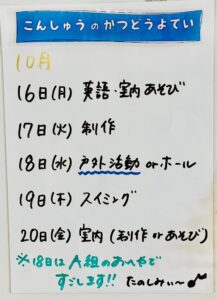 こんしゅうのかつどうよてい
10月
16日(月) 英語・室内あそび
17日(火) 制作
18日(水) 戸外活動 or ホール
19日(木) スイミング
20日(金) 室内(制作 or あそび)
※18日は A組のおへやで
すごします!! たのしみぃ〜♪